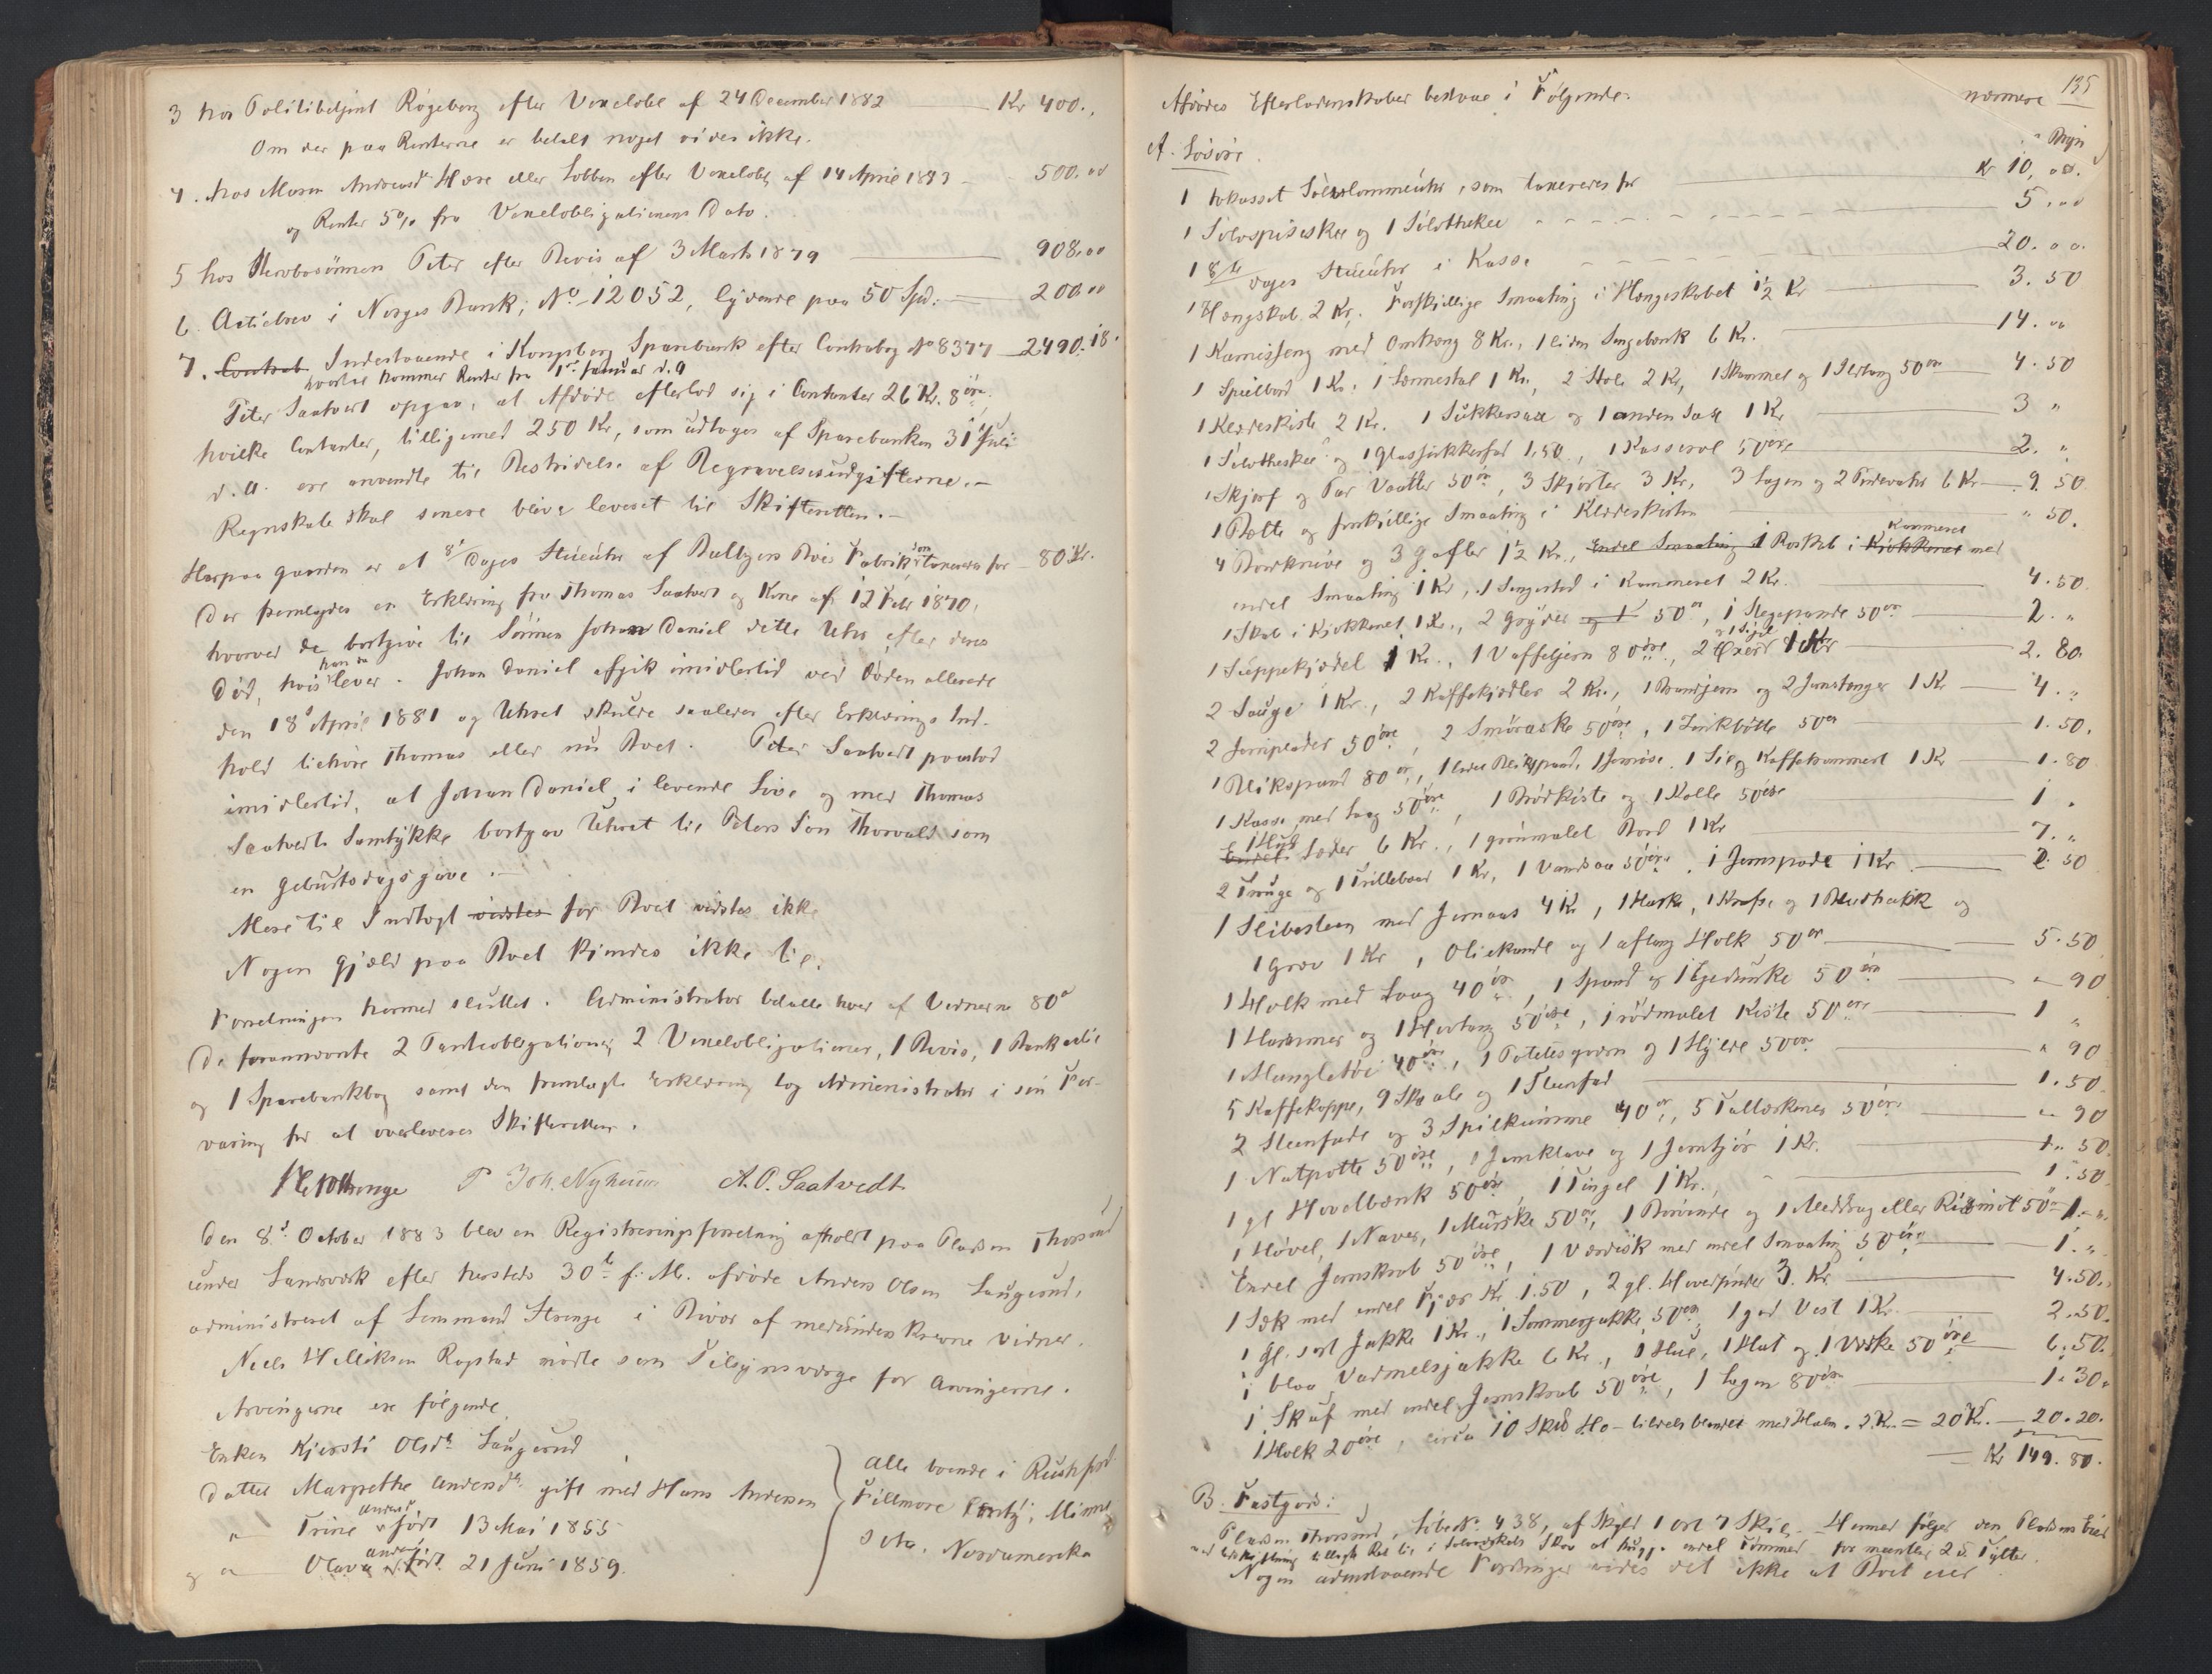 3 hos Politibetjent Rögeberg efter Vexelobl af 24 December 1882 Kr 400.,
Om der paa Renterne er betalt noget vides ikke.
4. hos Maren Andersd. efter Vexelobl. af 14 April 1873 500.00
og Renter 5% fra Vexelobligationens Dato.
5 hos Sterbosönnen Peter efter Bevis af 3 Marts 1879 908.00
6. Actiebrev i Norges Bank, No 12052, lydende paa 50 Spd. 200.00
7. Indestaaende i Kongsberg Sparebank efter Contrabog No 8377 2490.18.
hvortil kommer Renter fra 1ste Januar d. A
Peter Saatvedt opgav, at Afdöde efterlod sig i Contanter 26 Kr. 8 öre,
hvilke Contanter, tilligemed 250 Kr, som udtoges af Sparebanken 31 Juli
d. A. ere anvendte til Bestridelse af Begravelsesudgifterne.-
Regnskab skal senere blive leveret til Skifteretten.-
Herpaa gaarden er et 8te Dages Stueuhr af Fabrik, som taxeres for 80 Kr.
Der fremlagdes en Erklæring fra Thomas Saatvedt og Kone af 12 Febr 1870,
hvorved de bortgive til Sönnen Johan Daniel dette Uhr, efter deres
Död, hvis han da lever. Johan Daniel afgik imidlertid ved Döden allerede
den 18de April 1881 og Uhret skulde saaledes efter Erklærings Ind-
hold tilhöre Thomas eller nu Boet. Peter Saatvedt paastod
imidlertid, at Johan Daniel i levende Live og med Thomas
Saatvedts Samtykke bortgav Uhret til Peters Sön Thorvald som
en Geburtsdagsgave.-
Mere til Indtægt vidstes for Boet vidstes ikke
Nogen Gjæld paa Boet kjendes ikke til.
Forretningen hermed sluttet. Administrator betalte hver af Vidnerne 80 ø
De forannævnte 2 Panteobligationer, 2 Vexelobligationer, 1 Bevis, 1 Bankactie
og 1 Sparebankbog samt den fremlagte Erklæring tog Administrator i sin For-
varing for at overleveres Skifteretten.
Joh. Nyhuus A. O. Saatvedt
Den 8de October 1883 blev en Registreringsforretning afholdt paa Pladsen Thorsrud
under Landsværk efter hersteds 30te f. M. afdöde Anders Olsen Laugerud,
administreret af Lensmand Strenge i Bivær af medunderskrevne Vidner.
Niels Helliksen Rapstad mödte som Tilsynsværge for Arvingerne.
Arvingerne ere fölgende
Enken Kjersti Olsdr Laugerud
Datter Margrethe Andersdr gift med Hans Andersen
" Trine Andersdr födt 13 Mai 1855
og " Olava Andersdr födt 21 Juni 1859.
alle boende i Rushford
Fillmore County, Minne
sota, Nordamerika
135
Afdödes Efterladenskaber bestaar i Fölgende:
A. Lösöre.
1 tokasset Sölvlommeuhr, som taxeredes for Kr 10,00.
1 Sölvspiseskee og 1 Sölvtheskee 5.00
1 8te dages Stueuhr i Kasse 20.00.
1 Hængskab 2 Kr, Forskjellige Smaating i Hængeskabet 1½ Kr 3.50
1 Kamisseng med Omhæng 8 Kr., 1 liden Sengebænk 6 Kr. 14.00
1 Speilbord 1 Kr. 1 Lænnestol 1 Kr, 2 Stole 2 Kr, 1 Skammel og 1 Ildtang 50 ør 4.50
1 Klædeskiste 2 Kr. 1 Sukkersax og 1 anden Sax 1 Kr 3 "
1 Sölvtheskee og 1 Glassukkerfad 1.50, 1 Kasserol 50 öre 2. "
1 Skjerf og Par Vaatter 50 ör, 3 Skjorter 3 Kr, 3 Lagen og 2 Pudevahr 6 Kr 9.50
1 Bötte og forskjellige Smaating i Klædeskisten " 50.
4 Bordknive og 3 gafler 1½ Kr., Endel Smaating 1 Roskab i Kjökkenet Kammeret med
endel Smaating 1 Kr, 1 Sengested i Kammeret 2 Kr. 4.50
1 Skab i Kjökkenet 1 Kr., 2 Gryder og 1 50 ör, 1 Stegepande 50 ör 2. "
1 Suppekjedel 1 Kr., 1 Vaffeljern 80 öre, 2 1 Kr 2.80.
2 Sauge 1 Kr, 2 Kaffekjedler 2 Kr., 1 Brandjern og 2 Jernstænger 1 Kr 4. "
2 50 öre, 2 Smöraske 50 öre, 1 Zinkbötte 50 ör 1.50.
1 Blikspand 80 ör, 1 liden Blikspand, 1 Jernöse, 1 Sie og Kaffetrommert 1 Kr 1.80
1 Kasse med Laag 50 öre, 1 Brödkiste og 1 Kolle 50 öre 1.
Læder 6 Kr., 1 grönmalet Bord 1 Kr 7. "
2 Trauge og 1 Trillebaar 1 Kr, 1 Vandsaa 50 öre, 1 Jernspade 1 Kr 2.50
1 Slibesteen med Jernaas 4 Kr, 1 Harke, 1 Krafse og 1 og
1 Græv 1 Kr, Oliekande og 1 aflang Holk 50 ør 5.50
1 Holk med Laag 40 ör, 1 Spand og 1 50 ör " 90
1 Hammer og 1 Hovtang 50 öre, 1 rödmalet Kiste 50 öre 1 "
1 40 öre, 1 Potetesgrev og 1 Hylde 50 ör " 90
5 Kaffekoppe, 9 Skaale og 1 Steenfad 1.50
2 Steenfade og 3 Spilkumme 40 ör, 5 Tallerkener 50 öre " 90
1 Natpotte 50 öre, 1 Jernklave og 1 Jerntjör 1 Kr. 1.50
1 gl Hovelbænk 50 öre, 1 Tingel 1 Kr., 1.50
1 Hövel, 1 Naver, 1 Murske 50 ör, 1 og 1 Meddrag eller 50 ör 1. "
Endel Jernskrab 50 öre, 1 med endel Smaating 50 öre 1. "
1 Sæk med endel Fjær Kr 1.50, 2 gl. Hovedpuder 3 Kr 4.50.
1 gl. sort Jakke 1 Kr., 1 Sommerjakke 50 ör, 1 god Vest 1 Kr. 2.50.
1 blaa Vadmelsjakke 6 Kr., 1 Hue, 1 Hat og 1 50 öre 6.50.
1 Skuf med endel Jernskrab 50 öre, 1 Lagen 80 öre 1.30.
1 Holk 20 öre, circa 10 Skpd Hö - tildels blandet med Halm. 2 Kr. = 20 Kr. 20.20.
Kr 149.80.
B. Fastgods:
Pladsen Thorsrud, Löbe No. 438, af Skyld 1 ort 7 Skil.- Hermed fölger den Pladsens Eier
Nogen udenstaaende Fordringer vides det ikke at Boet eier